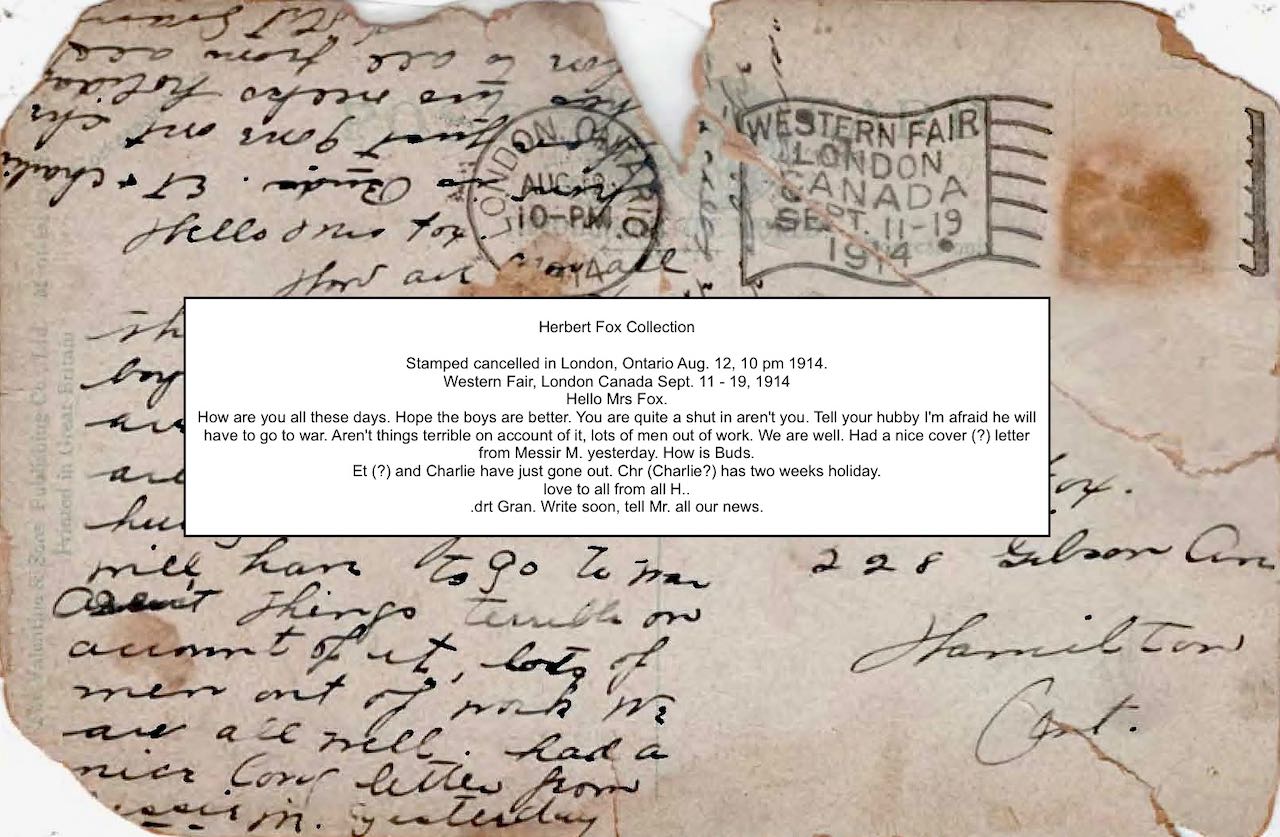 LONDON, ONTARIO
AUG 12
10-PM
14
WESTERN FAIR
LONDON
CANADA
SEPT. 11-19
1914
love to all from all
has two weeks holiday
just gone out Chr
Buds. Et + Charlie
Hello Mrs Fox.
How are you all
Herbert Fox Collection
Stamped cancelled in London, Ontario Aug. 12, 10 pm 1914.
Western Fair, London Canada Sept. 11 - 19, 1914
Hello Mrs Fox.
How are you all these days. Hope the boys are better. You are quite a shut in aren't you. Tell your hubby I'm afraid he will
have to go to war. Aren't things terrible on account of it, lots of men out of work. We are well. Had a nice cover (?) letter
from Messir M. yesterday. How is Buds.
Et (?) and Charlie have just gone out. Chr (Charlie?) has two weeks holiday.
love to all from all H..
.drt Gran. Write soon, tell Mr. all our news.
will have to go to war
Aren't things terrible on
account of it, lots of
men out of work We
are all well. had a
nice long letter from
M. yesterday
Fox.
228 Gibson Ave
Hamilton
Ont.
Valentine & Sons Publishing Co., Ltd.
Printed in Great Britain